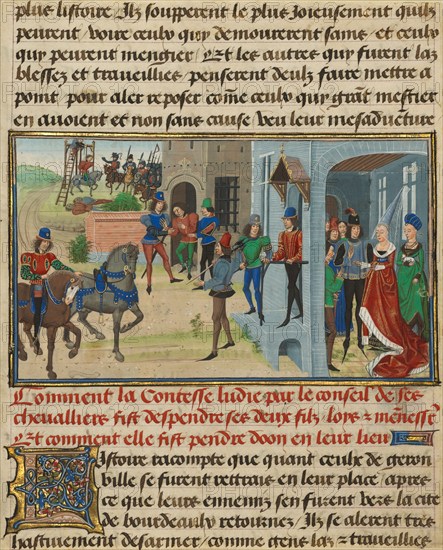 plus listoire Ilz soupperent le plus joieusement quilz
peurent voire ceulx quy demourerent sains et ceulx
quy peurent mengier Et les autres quy furent la
blessez et traveilliez penserent deulx faire mettre a
point pour aler reposer com̄e ceulx quy grāt mestier
en avoient et non sans cause veu leur mesadventure
Comment la Contesse ludie par le conseil de ses
chevalliers fist despendre ses deux filz lors et
Et comment elle fist pendre doon en leur lieu
Listoire racompte que quant ceulx de geron
ville se furent retrais en leur place apres
ce que leurs ennemis sen furent vers la cite
de bourdeaulx retournez Ilz se alerent tres
hastivement desarmer comme gens las et traveilliez